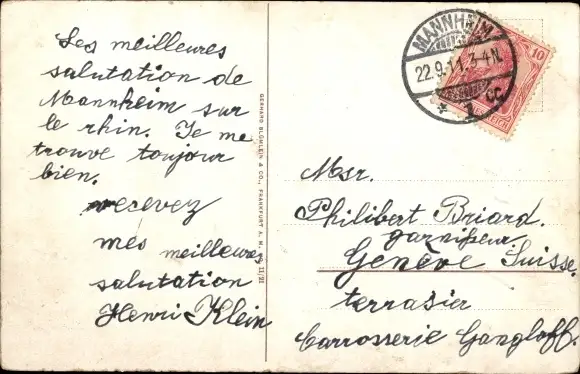 Les meilleures
salutation de
Mannheim sur
le rhin. Je me
trouve toujour
bien.
recevez
mes meilleures
salutation
Henri Klein
GERHARD BLÜMLEIN & CO., FRANKFURT A. M.
11/21
MANNHEIM
22.9.11. 3-4N.
* 1 cc
10
REICH
Msr.
Philibert Briard.
garnisseur.
Genève Suisse.
terrasier
Carrosserie Gangloff.